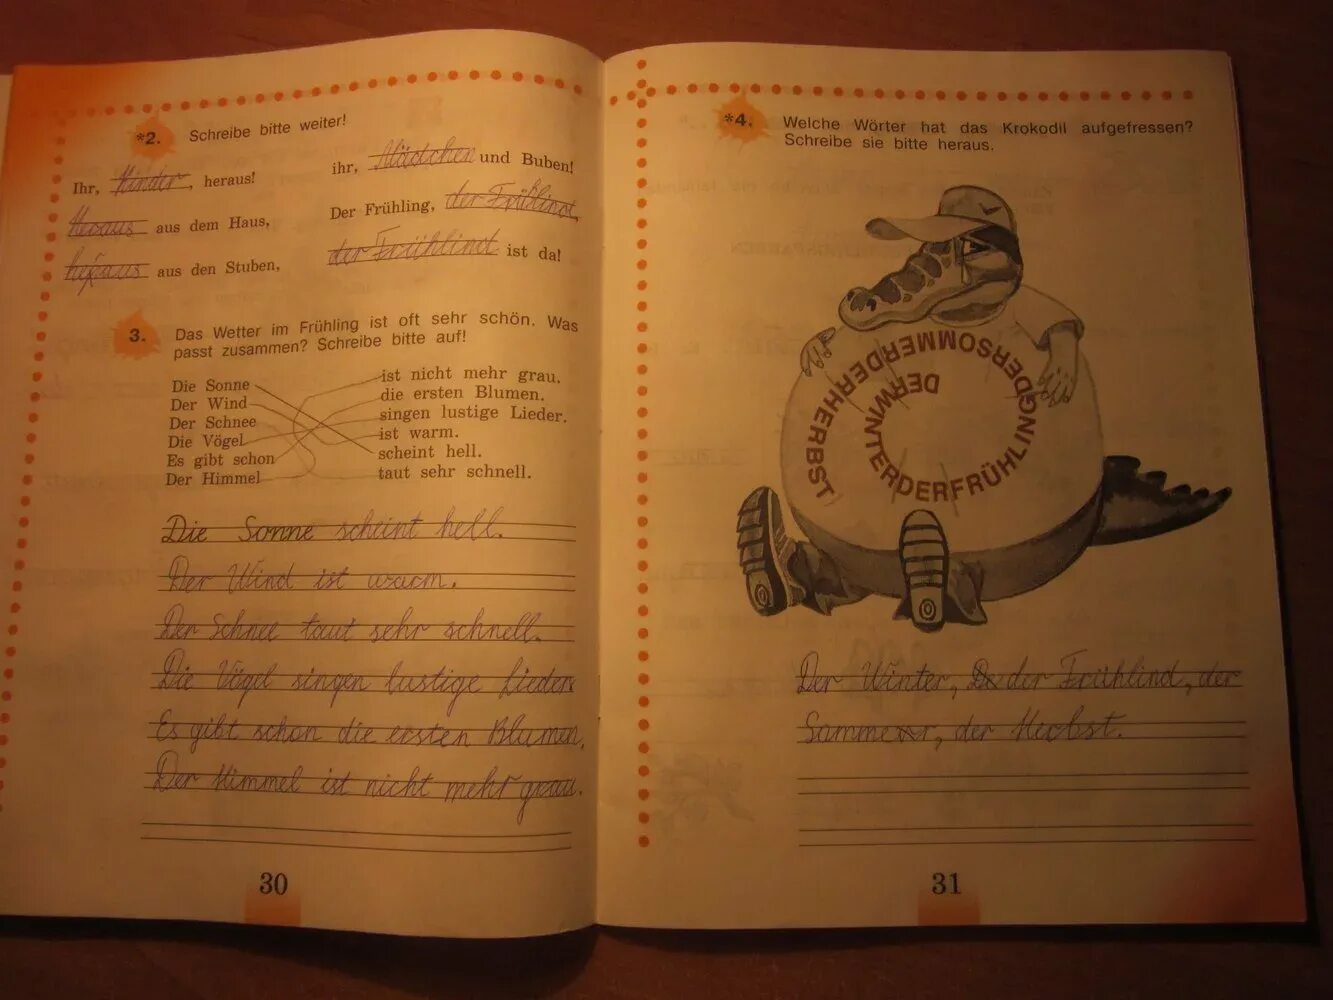 *2. Schreibe bitte weiter!
Ihr, Kinder, heraus!
Heraus aus dem Haus,
heraus aus den Stuben,
ihr, Mädchen und Buben!
Der Frühling, der Frühlind,
der Frühlind ist da!
3. Das Wetter im Frühling ist oft sehr schön. Was
passt zusammen? Schreibe bitte auf!
Die Sonne
Der Wind
Der Schnee
Die Vögel
Es gibt schon
Der Himmel
ist nicht mehr grau.
die ersten Blumen.
singen lustige Lieder.
ist warm.
scheint hell.
taut sehr schnell.
Die Sonne scheint hell.
Der Wind ist warm.
Der Schnee taut sehr schnell.
Die Vögel singen lustige Lieder.
Es gibt schon die ersten Blumen.
Der Himmel ist nicht mehr grau.
30
*4. Welche Wörter hat das Krokodil aufgefressen?
Schreibe sie bitte heraus.
DERWINTERDERFRÜHLINGDERSOMMERDERHERBST
Der Winter, der Frühlind, der
Sammer, der Herbst.
31